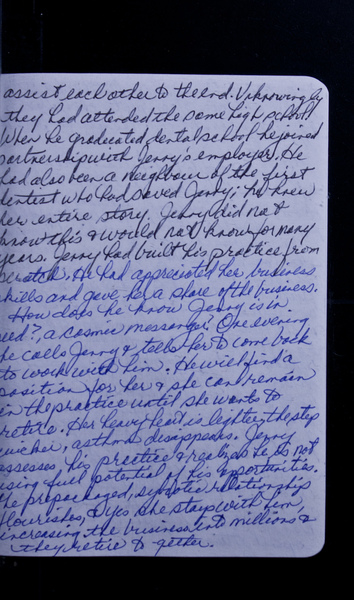 assist each other to the end. Unknowingly
they had attended the same high school!
When he graduated dental school he joined
partnership with Jerry's employer. He
had also been a neighbour of the first
dentist who had saved Jenny; he knew
her entire story. Jenny did not
know this & would not know for many
years. Jerry had built his practice from
scratch. He had appreciated her business
skills and gave her a share of the business.
How does he know Jenny is in
need?, a cosmic messenger? One evening
he calls Jenny & tells her to come back
to work with him. He will find a
position for her & she can remain
in the practice until she wants to
retire. Her heavy heart is lighter, the step
quicker, asthma disappears. Jenny
assesses, his practice & realizes he is not
using full potential of his opportunities.
the prepackaged, symbiotic relationship
flourishes, & yes she stays with him,
increasing the business into millions &
they retire together.